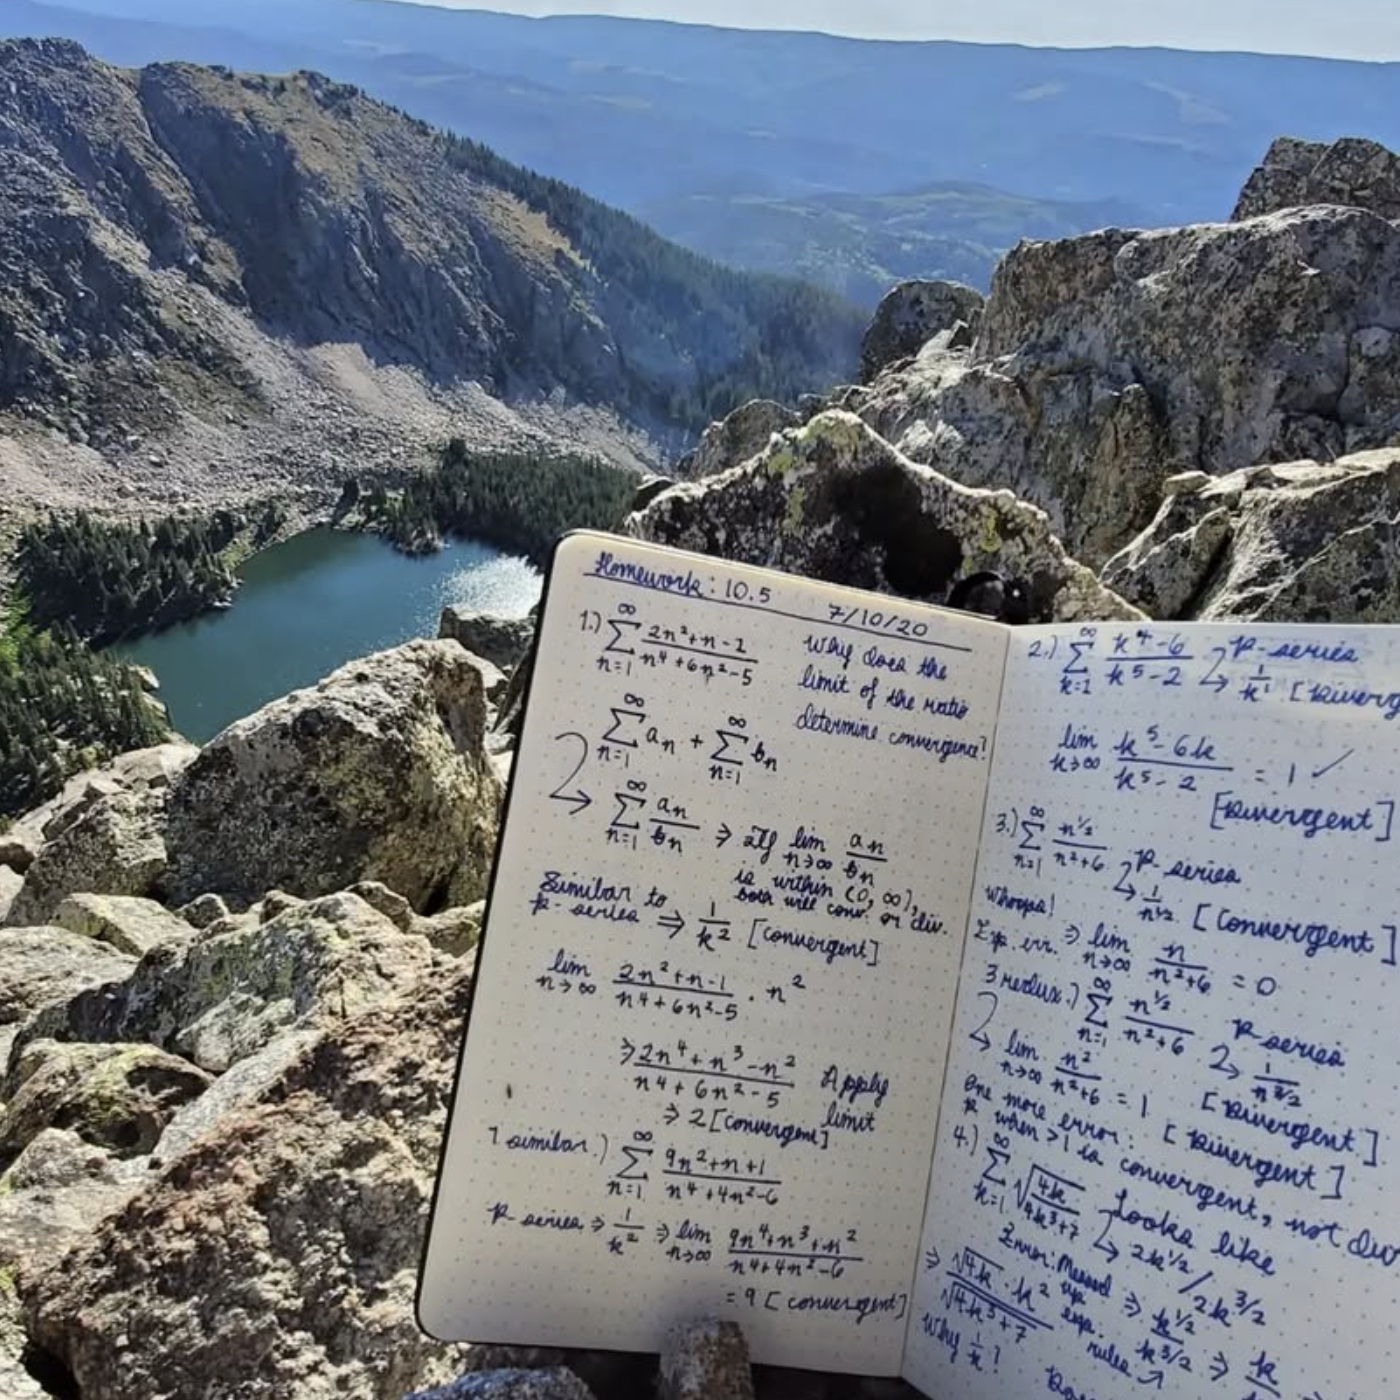 Homework: 10.5
7/10/20
1.) ∞∑n=1 (2n²+n-1)/(n⁴+6n²-5)
Why does the
limit of the ratio
determine convergence?
∞∑n=1 aₙ + ∞∑n=1 bₙ
∞∑n=1 aₙ/bₙ ⇒ If lim n→∞ aₙ/bₙ
is within (0, ∞),
both will conv. or div.
Similar to
p-series ⇒ 1/k² [convergent]
lim n→∞ (2n²+n-1)/(n⁴+6n²-5) · n²
⇒ (2n⁴+n³-n²)/(n⁴+6n²-5) Apply
limit
⇒ 2 [convergent]
1 similar.) ∞∑n=1 (9n²+n+1)/(n⁴+4n²-6)
p-series ⇒ 1/k² ⇒ lim n→∞ (9n⁴+n³+n²)/(n⁴+4n²-6)
= 9 [convergent]
2.) ∞∑k=1 (k⁴-6)/(k⁵-2) p-series
1/k¹ [Diverg
lim k→∞ (k⁵-6k)/(k⁵-2) = 1 ✓
[Divergent]
3.) ∞∑n=1 n^½/(n²+6) p-series
1/n^½ [Convergent]
Whoops!
Exp. err. ⇒ lim n→∞ n/(n²+6) = 0
3 redux.) ∞∑n=1 n^½/(n²+6) p-series
1/n^3/2
lim n→∞ n²/(n²+6) = 1 [Divergent]
One more error: [Divergent]
p when >1 is convergent, not div
4.) ∞∑k=1 √(4k/(4k³+7)) Looks like
2k^1/2 / 2k^3/2
Error: Messed up exp. rules
⇒ √4k · k²/√(4k³+7) ⇒ k^1/2/k^3/2 ⇒ k
Why 1/k?